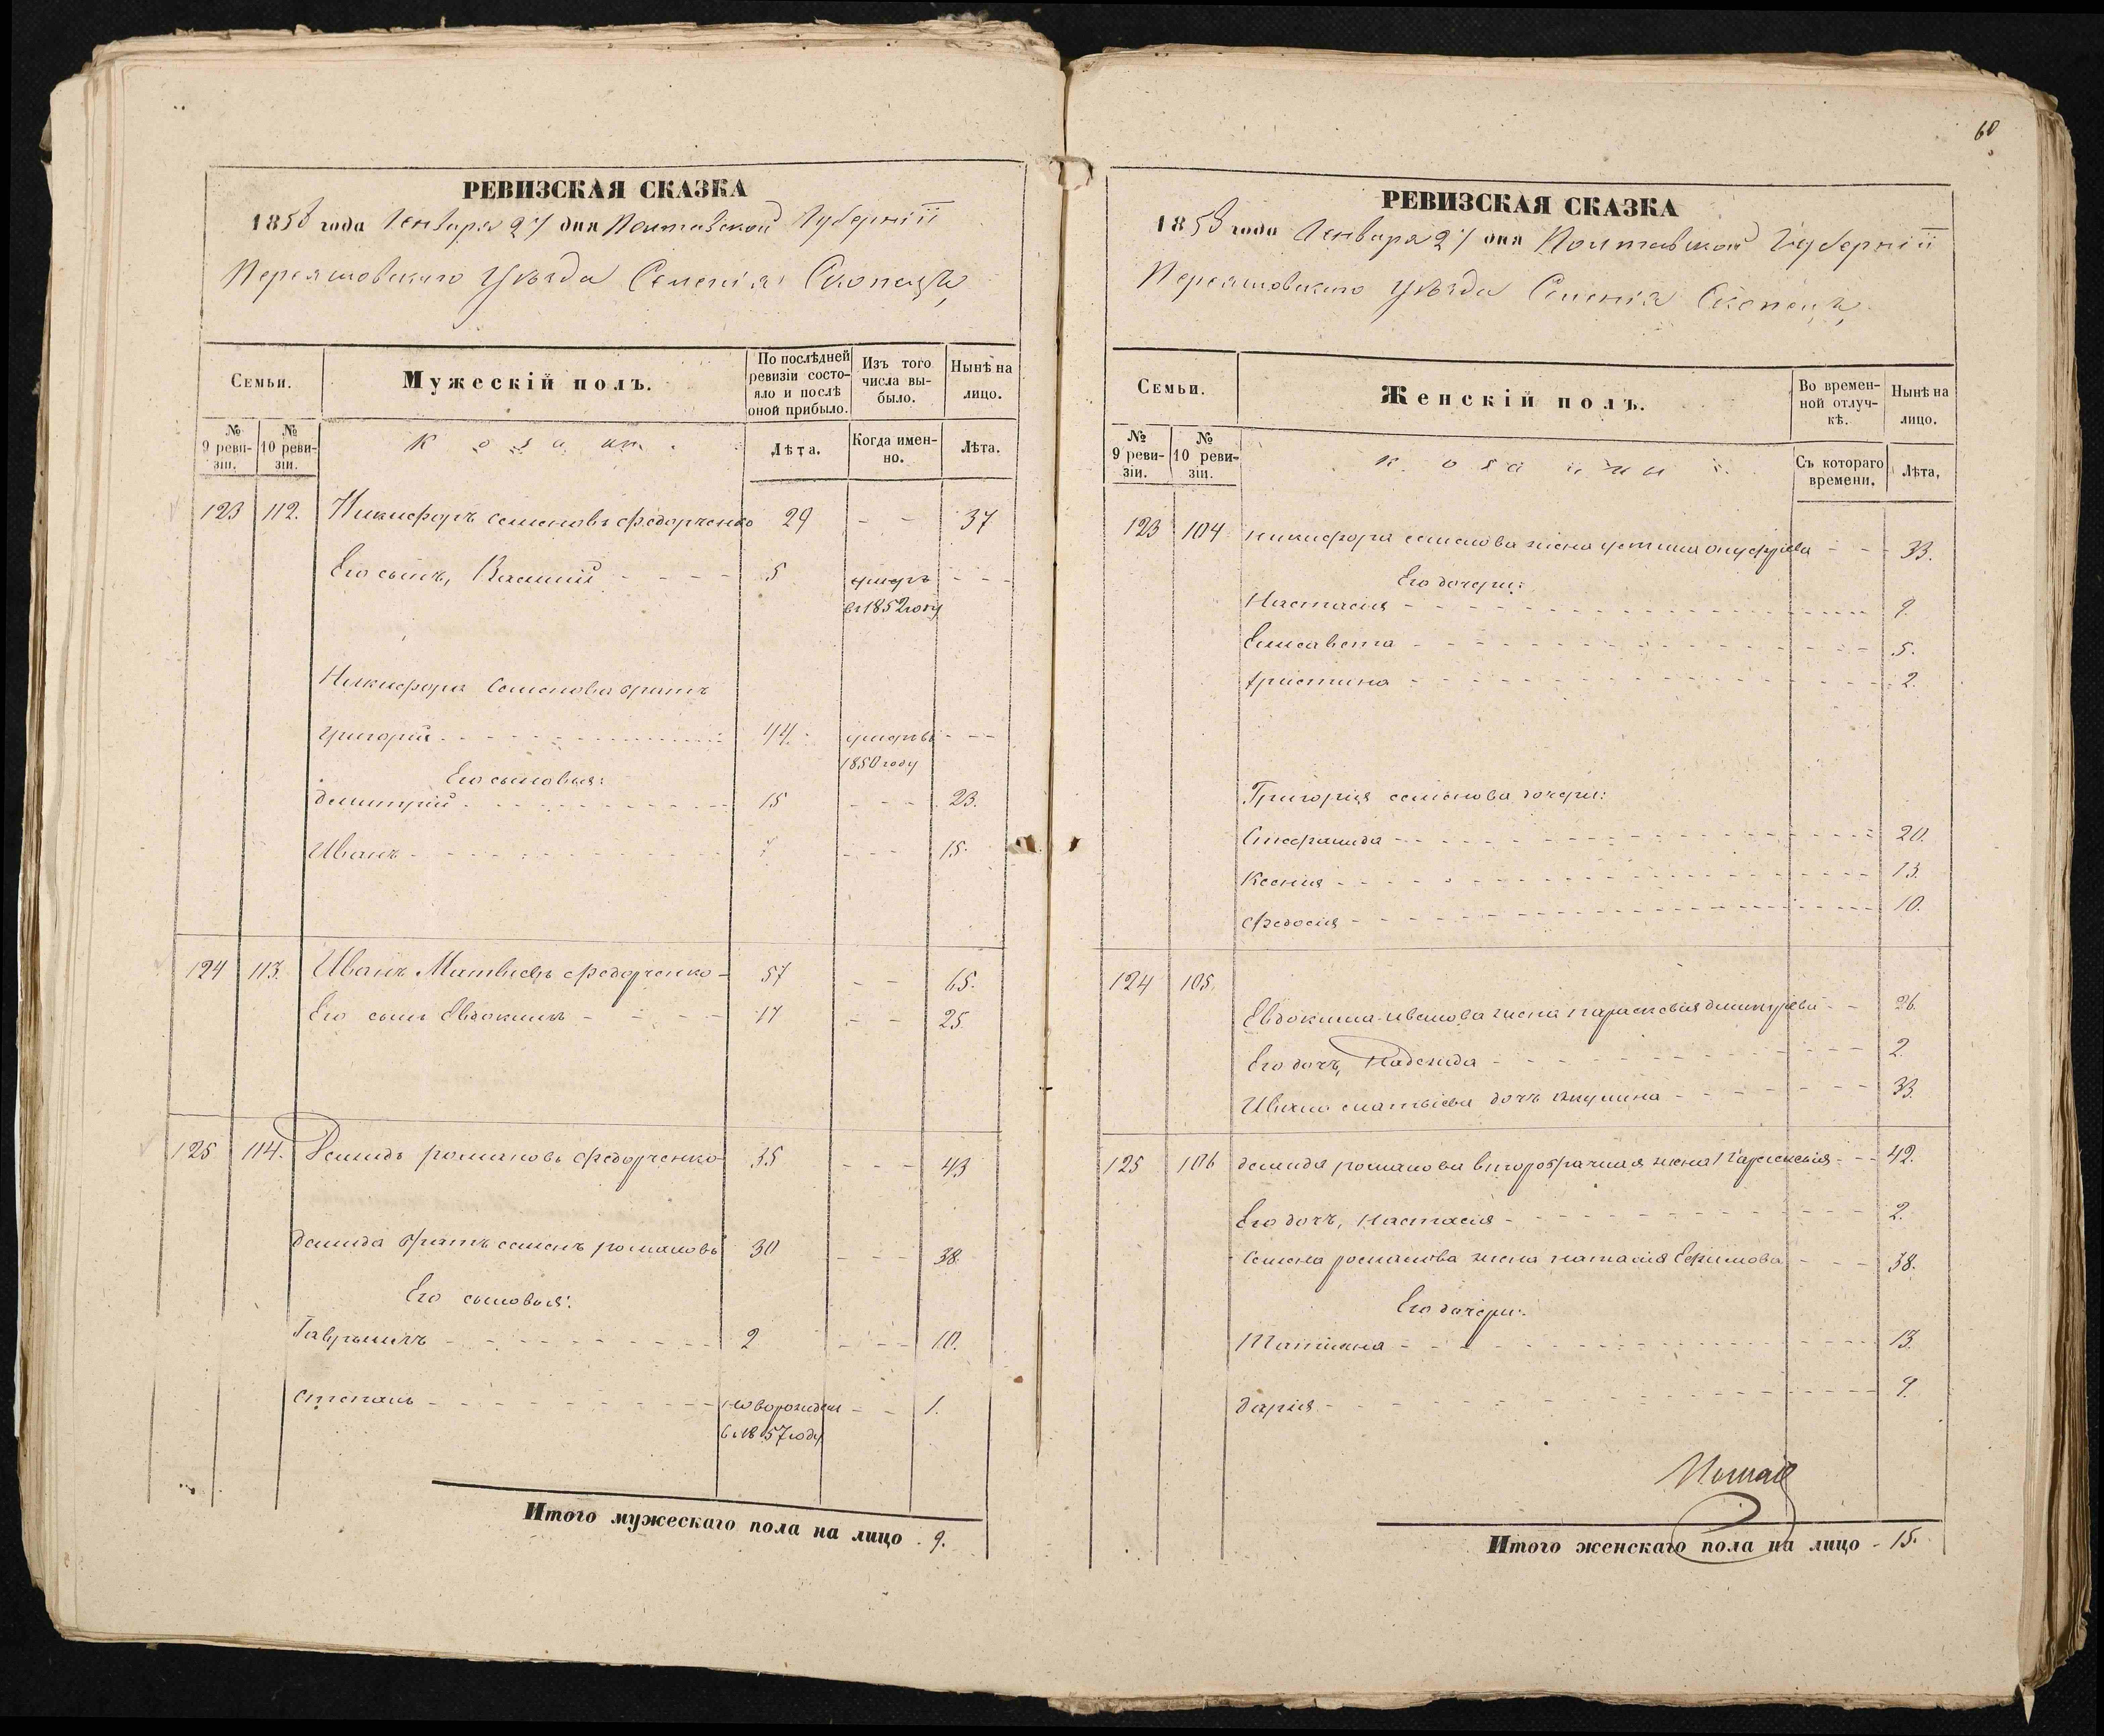 РЕВИЗСКАЯ СКАЗКА
1858 года Генваря 27 дня Полтавской Губерніи
Переяславскаго Уѣзда Селенія Скопецъ
Семьи.
Мужескій полъ.
По послѣдней ревизіи состояло и послѣ оной прибыло.
Изъ того числа выбыло.
Нынѣ на лицо.
№ 9 ревизіи.
№ 10 ревизіи.
Козаки.
Лѣта.
Когда именно.
Лѣта.
123 112. Никифоръ семеновъ Федорченко 29 - - 37
Его сынъ, Василий - - - - 5 умеръ - - -
въ 1852 году
Никифора Семенова братъ
григорий - - - 44. умеръ въ - - -
1850 году
Его сыновья:
димитрий - - - 15 - - - 23.
Иванъ - - - 7 - - - 15.
124 113. Иванъ Матвиевъ Федорченко - 57 - - 65.
Его сынъ Евдокимъ - - - 17 - - 25.
125 114. Демидъ романовъ Федорченко 35 - - - 43
демида братъ семенъ романовъ 30 - - - 38.
Его сыновья:
Гаврыилъ - - - 2 - - - 10.
степанъ - - - новорожден - - 1.
въ 1857 году
Итого мужескаго пола на лицо . 9.
60
РЕВИЗСКАЯ СКАЗКА
1858 года Генваря 27 дня Полтавской Губерніи
Переяславскаго Уѣзда Селенія Скопецъ
Семьи.
Женскій полъ.
Во временной отлучкѣ.
Нынѣ на лицо.
№ 9 ревизіи.
№ 10 ревизіи.
Съ котораго времени.
Лѣта,
123 104 никифора семенова жена устина онуфріева - - - 33.
Его дочери:
Настасия - - - 9.
Елисавета - - - 5.
христина - - - 2.
Григория семенова дочери:
Стефанида - - - 20.
Ксения - - - 13.
Федосия - - - 10.
124 105.
Евдокима иванова жена парасковия димитріева - - 26.
Его дочъ, Надежда - - - 2.
Ивана матвіева дочъ акулина - - - 33.
125 106 демида романова второбрачная жена - - - 42.
Его дочъ, Настасия - - - 2.
семена романова жена Ефимова - - - 38.
Его дочери:
Татияна - - - 13.
дария - - - 9.
Итого женскаго пола на лицо - 15.